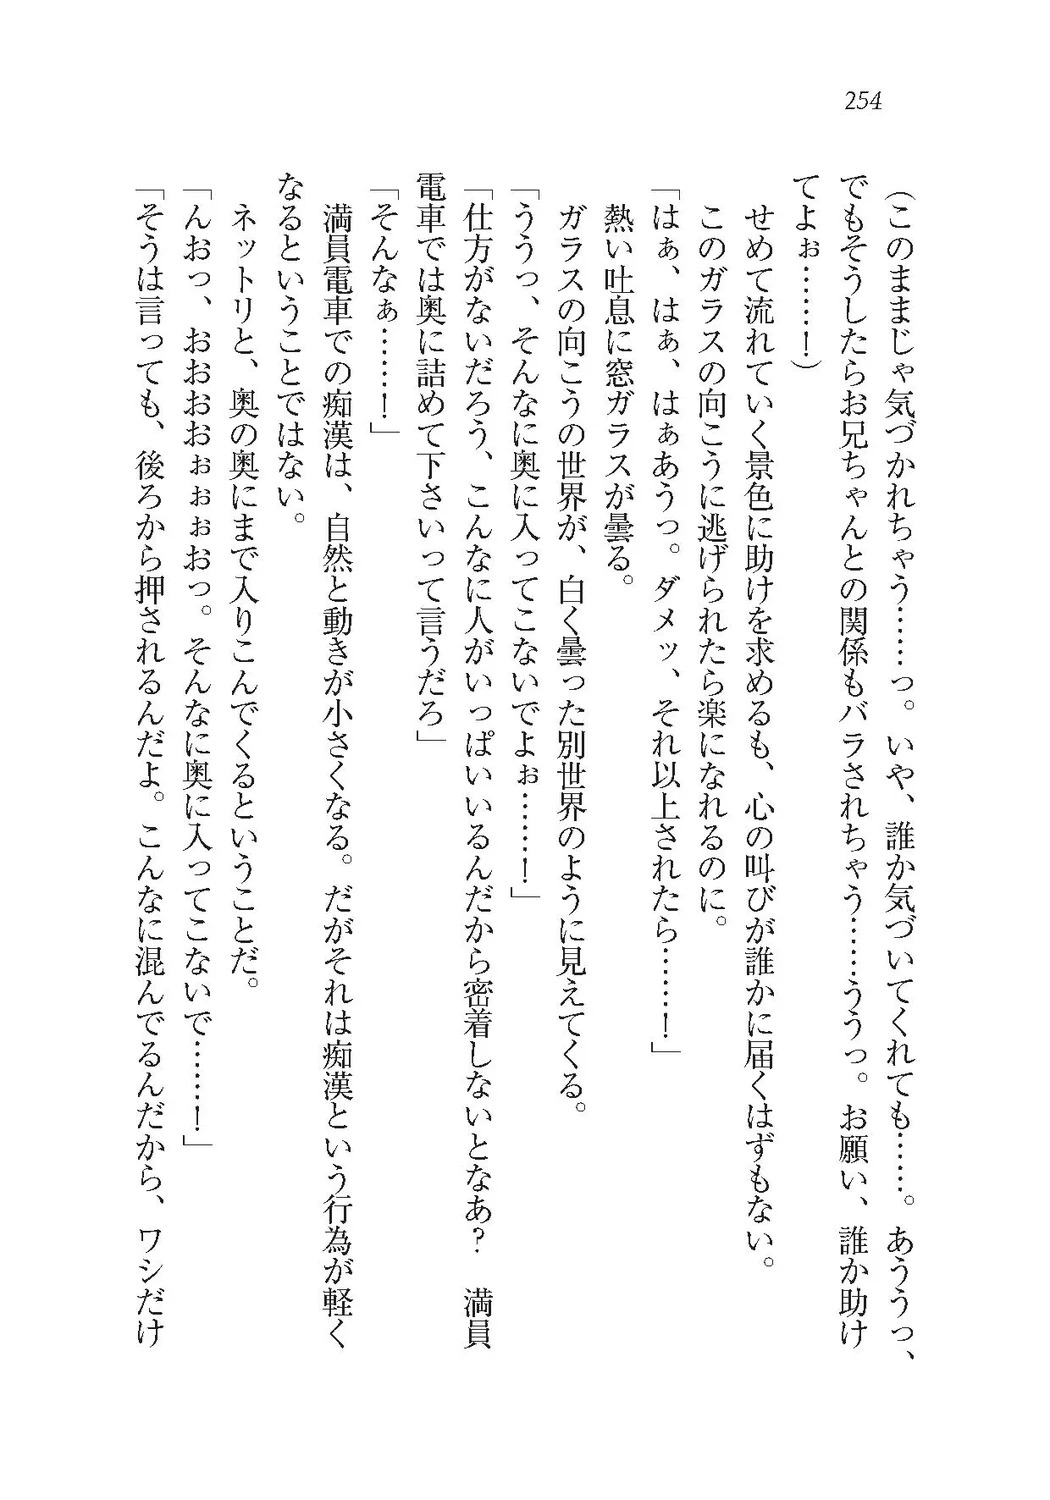 254
(このままじゃ気づかれちゃう……っ。いや、誰か気づいてくれても……。あううっ、
でもそうしたらお兄ちゃんとの関係もバラされちゃう……ううっ。お願い、誰か助け
てよぉ……！)
せめて流れていく景色に助けを求めるも、心の叫びが誰かに届くはずもない。
このガラスの向こうに逃げられたら楽になれるのに。
「はぁ、はぁ、はぁあうっ。ダメッ、それ以上されたら……！」
熱い吐息に窓ガラスが曇る。
ガラスの向こうの世界が、白く曇った別世界のように見えてくる。
「ううっ、そんなに奥に入ってこないでよぉ……！」
「仕方がないだろう、こんなに人がいっぱいいるんだから密着しないとなあ？　満員
電車では奥に詰めて下さいって言うだろ」
「そんなぁ……！」
満員電車での痴漢は、自然と動きが小さくなる。だがそれは痴漢という行為が軽く
なるということではない。
ネットリと、奥の奥にまで入りこんでくるということだ。
「んおっ、おおおおぉぉぉおっ。そんなに奥に入ってこないで……！」
「そうは言っても、後ろから押されるんだよ。こんなに混んでるんだから、ワシだけ